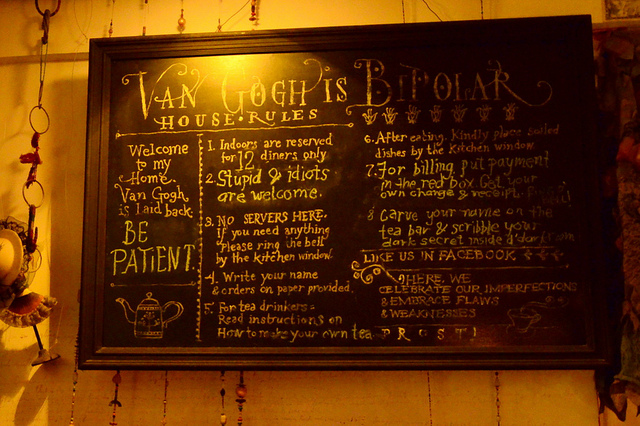 VAN GOGH IS BIPOLAR
HOUSE • RULES
Welcome
to my
Home.
Van Gogh
is Laid back
BE
PATIENT.
1. Indoors are reserved
for 12 diners only
2. Stupid & idiots
are welcome.
3. NO SERVERS HERE.
If you need anything
Please ring the bell
by the kitchen window
4. Write your name
& orders on paper provided
5. For tea drinkers =
Read instructions on
How to make your own tea.
6. After eating, Kindly place soiled
dishes by the Kitchen window
7. For billing, put payment
in the red box. Get your
own change & receipt.
8. Carve your name on the
tea bar & scribble your
dark secret inside
LIKE US IN FACEBOOK
HERE, WE
CELEBRATE OUR IMPERFECTIONS
& EMBRACE FLAWS
& WEAKNESSES
PROST!